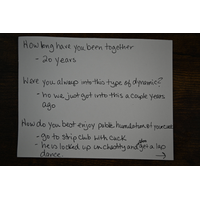 How long have you been together
- 20 years
Were you always into this type of dynamic?
- no we just got into this a couple years
ago
How do you best enjoy public humiliation of your cuck
- go to strip club with cuck
- he is locked up in chastity and get a lap
dance →